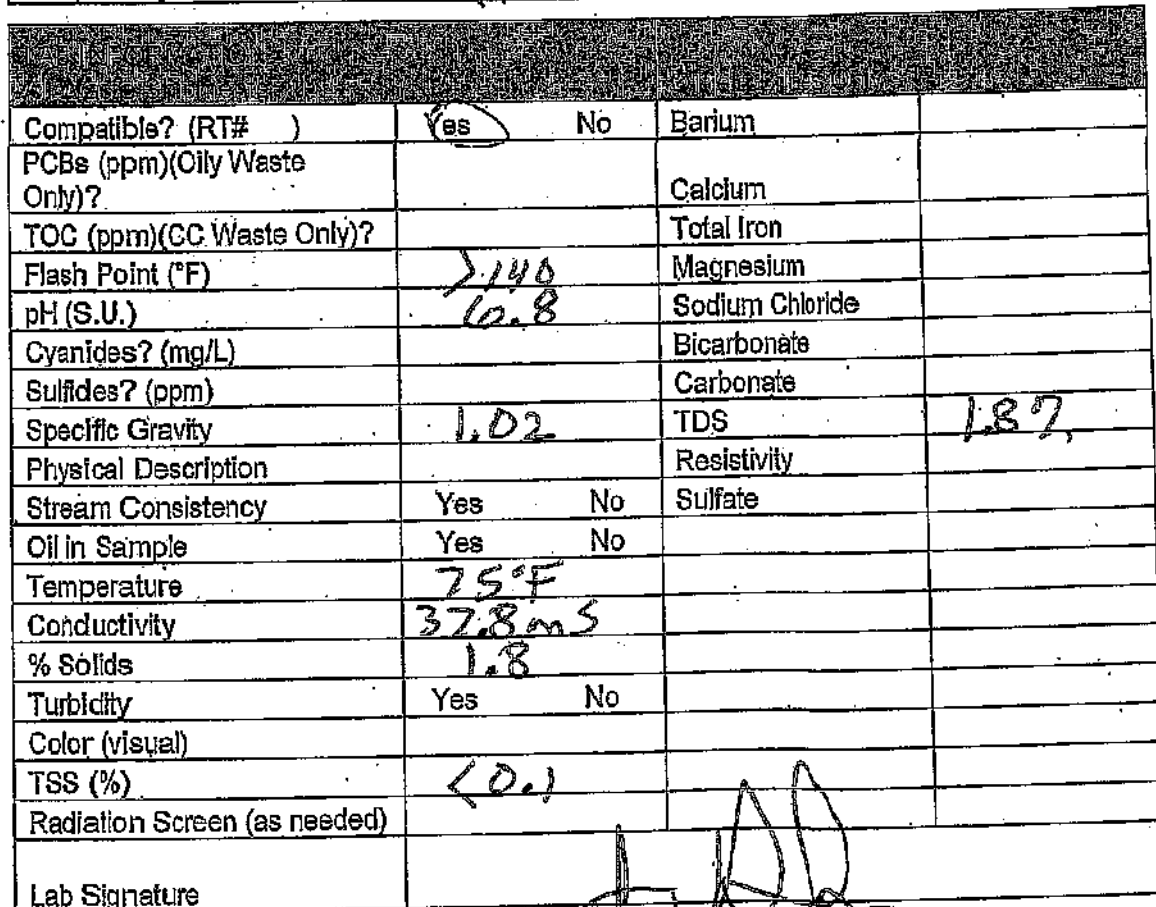 Compatible? (RT# ) Yes No Barium
PCBs (ppm)(Oily Waste
Only)? Calcium
TOC (ppm)(CC Waste Only)? Total Iron
Flash Point (°F) >140 Magnesium
pH (S.U.) 6.8 Sodium Chloride
Cyanides? (mg/L) Bicarbonate
Sulfides? (ppm) Carbonate
Specific Gravity 1.02 TDS
Physical Description Resistivity
Stream Consistency Yes No Sulfate
Oil in Sample Yes No
Temperature 75°F
Conductivity 37.8 mS
% Solids 1.8
Turbidity Yes No
Color (visual)
TSS (%) <0.1
Radiation Screen (as needed)
Lab Signature